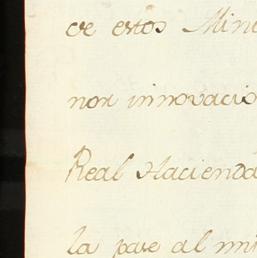 de estos Mine
nor innovacio
Real Hacienda
la pase al mi